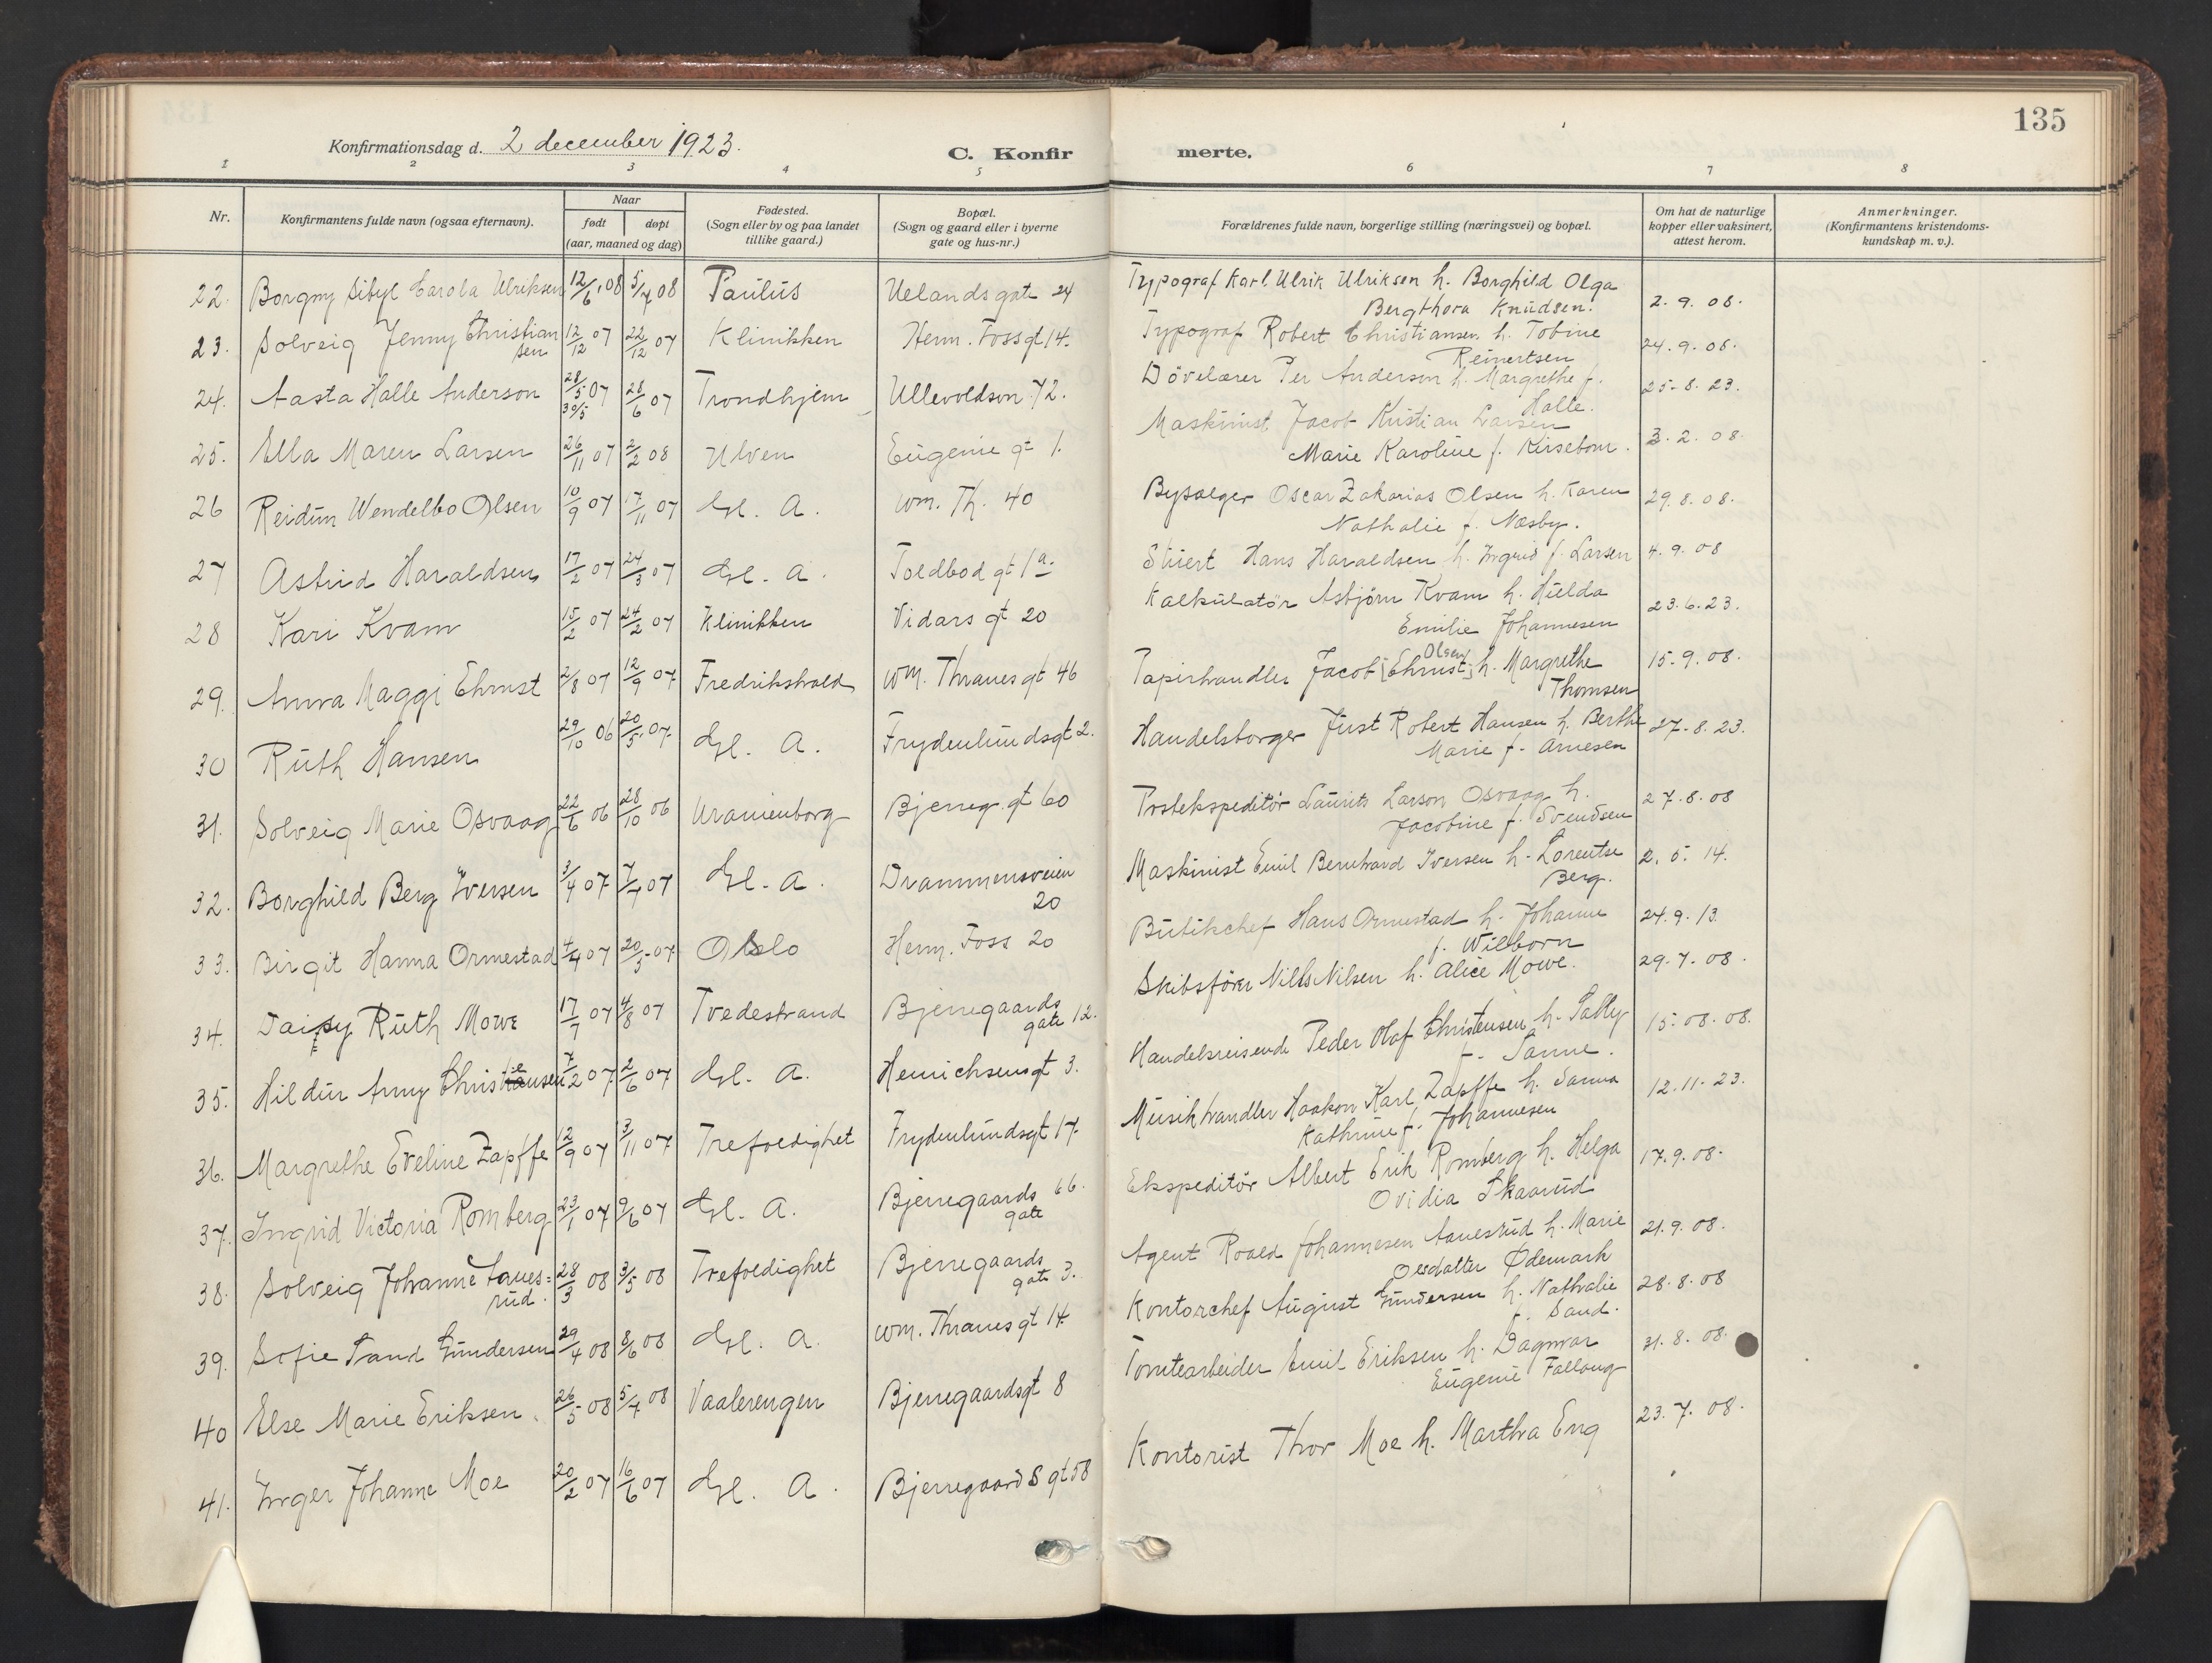 135
Konfirmationsdag d. 2 december 1923.
C. Konfir merte.
1 2 3 4 5 6 7 8
Nr.
Konfirmantens fulde navn (ogsaa efternavn).
Naar
født døpt
(aar, maaned og dag)
Fødested.
(Sogn eller by og paa landet
tillike gaard.)
Bopæl.
(Sogn og gaard eller i byerne
gate og hus-nr.)
Forældrenes fulde navn, borgerlige stilling (næringsvei) og bopæl.
Om hat de naturlige
kopper eller vaksinert,
attest herom.
Anmerkninger.
(Konfirmantens kristendoms-
kundskap m. v.).
22. Borgny Sibyl Carola Ulriksen 12/6 08 5/7 08 Paulus Uelandsgate 24 Typograf Karl Ulrik Ulriksen h. Borghild Olga 2. 9. 08.
Bergthora Knudsen.
23. Solveig Jenny Christian 12/12 07 22/12 07 Klinikken Herm. Foss gt 14. Typograf Robert Christiansen h. Tobine 24. 9. 08.
sen Reinertsen
24. Aasta Halle Anderson 28/5 07 28/6 07 Trondhjem Ullevoldsvn 72. Døvelærer Per Anderson h. Margrethe f. 25. 8. 23.
30/5 Halle.
25. Ella Maren Larsen 26/11 07 2/2 08 Ulven Eugenie gt 1. Maskinist Jacob Kristian Larsen 3. 2. 08.
Marie Karoline f. Kirsebom.
26 Reidun Wendelbo Olsen 10/9 07 17/11 07 Gl. A. Wm. Th. 40 Bysælger Oscar Zakarias Olsen h. Karen 29. 8. 08.
Nathalie f. Næsby.
27 Astrid Haraldsen 17/2 07 24/3 07 Gl. A. Toldbod gt 1 a. Stuert Hans Haraldsen h. Ingrid f. Larsen 4. 9. 08
28 Kari Kvam 15/2 07 24/2 07 Klinikken Vidars gt 20 Kalkulatør Asbjørn Kvam h. Hulda 23. 6. 23.
Emilie Johannesen
29. Anna Maggi Ehrnst 2/8 07 12/9 07 Fredrikshald Wm. Thranes gt 46 Papirhandler Jacob [Ehrnst] Olsen h. Margrethe 15. 9. 08.
Thomsen
30 Ruth Hansen 29/10 06 20/5 07. Gl. A. Frydenlundsgt 2. Handelsborger Just Robert Hansen h. Berthe 27. 8. 23.
Marie f. Arnesen
31. Solveig Marie Osvaag 22/6 06 28/10 06 Uranienborg Bjerreg. gt 60 Postekspeditør Laurits Larson Osvaag h. 27. 8. 08
Jacobine f. Svendsen
32. Borghild Berg Iversen 3/4 07 7/7 07 Gl. A. Drammensveien Maskinist Emil Bernhard Iversen h. Lorentse 2. 5. 14.
20 Berg.
33. Birgit Hanna Ormestad 4/4 07 20/5 07 Oslo Herm. Foss 20 Butikchef Hans Ormestad h. Johanne 24. 9. 13.
f. Wilborn
34. Daisy Ruth Mowe 17/7 07 4/8 07 Tvedestrand Bjerregaards Skibsfører Nills Nilsen h. Alice Mowe. 29. 7. 08.
gate 12.
35. Hildur Anny Christensen 7/2 07 2/6 07 Gl. A. Henrichsensgt 3. Handelsreisende Peder Olaf Christensen h. Sally 15. 08. 08.
f. Sanne.
36. Margrethe Eveline Zapffe 12/9 07 3/11 07 Trefoldighet Frydenlundsgt 17. Musikhandler Haakon Karl Zapffe h. Sanna 12. 11. 23.
Kathrine f. Johannesen
37. Ingrid Victoria Romberg 23/1 07 9/6 07 Gl. A. Bjerregaards 66. Ekspeditør Albert Erik Romberg h. Helga 17. 9. 08.
gate Ovidia Skaarud
38. Solveig Johanne Aanes= 28/3 08 3/5 08 Trefoldighet Bjerregaards Agent Roald Johannesen Aanesrud h. Marie 21. 9. 08.
rud. gate 3. Olsdatter Ødemark
39. Sofie Sand Gundersen 29/4 08 8/6 08 Gl. A. Wm. Thranes gt 14 Kontorchef August Gundersen h. Nathalie 28. 8. 08
f. Sand.
40 Else Marie Eriksen 26/5 08 5/7 08 Vaalerengen Bjerregaardsgt 8 Tomtearbeider Emil Eriksen h. Dagmar 31. 8. 08.
Eugenie Fallang
41. Inger Johanne Moe 20/2 07 16/6 07 Gl. A. Bjerregaards gt 58 Kontorist Thor Moe h. Martha Eng 23. 7. 08.